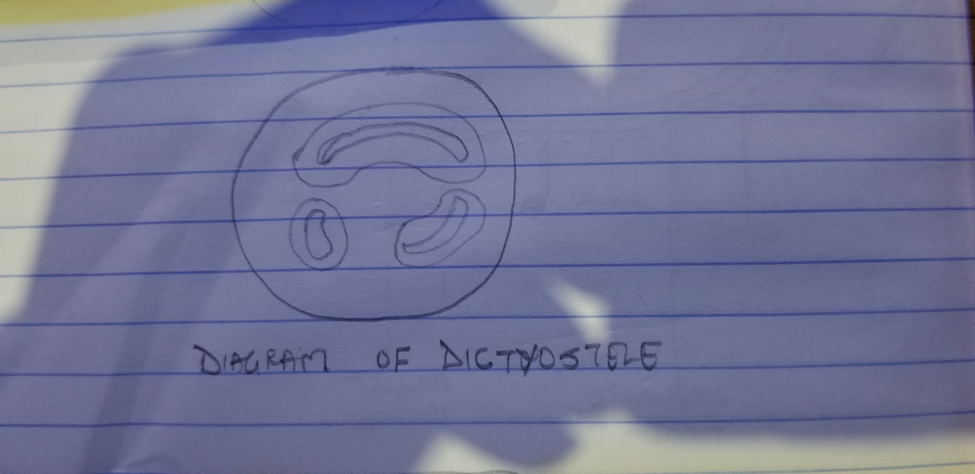 DIAGRAM OF DICTYOSTELE